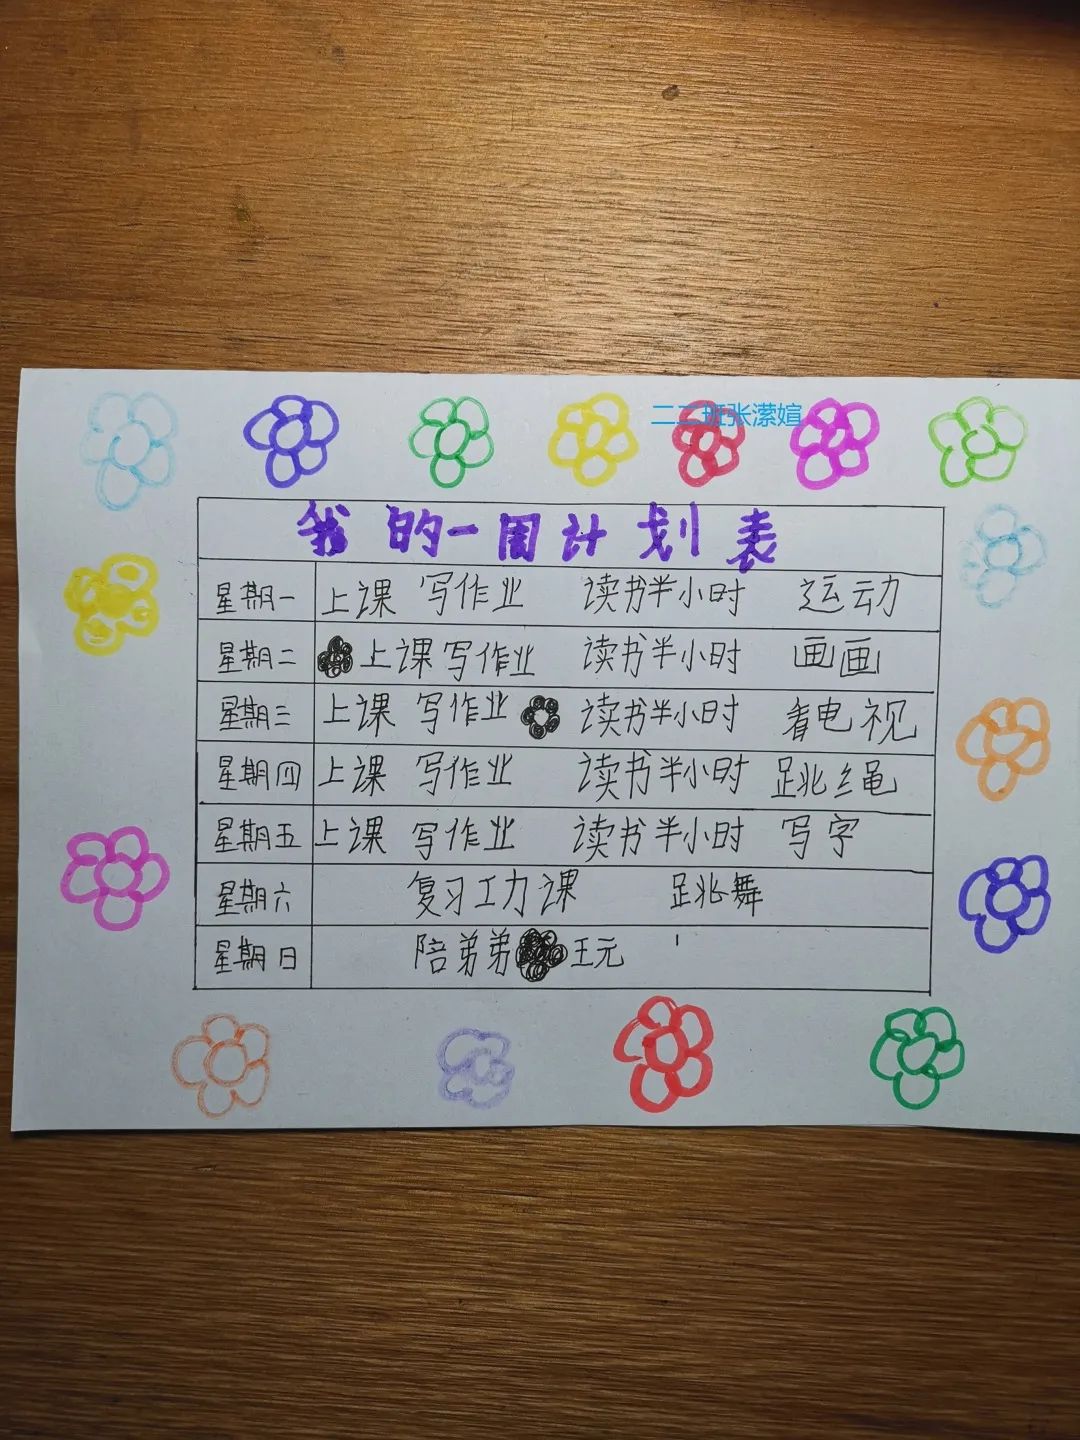 二二班张潆媗
我的一周计划表
星期一 上课 写作业 读书半小时 运动
星期二 上课 写作业 读书半小时 画画
星期三 上课 写作业 读书半小时 看电视
星期四 上课 写作业 读书半小时 跳绳
星期五 上课 写作业 读书半小时 写字
星期六 复习工力课 跳舞
星期日 陪弟弟 王元